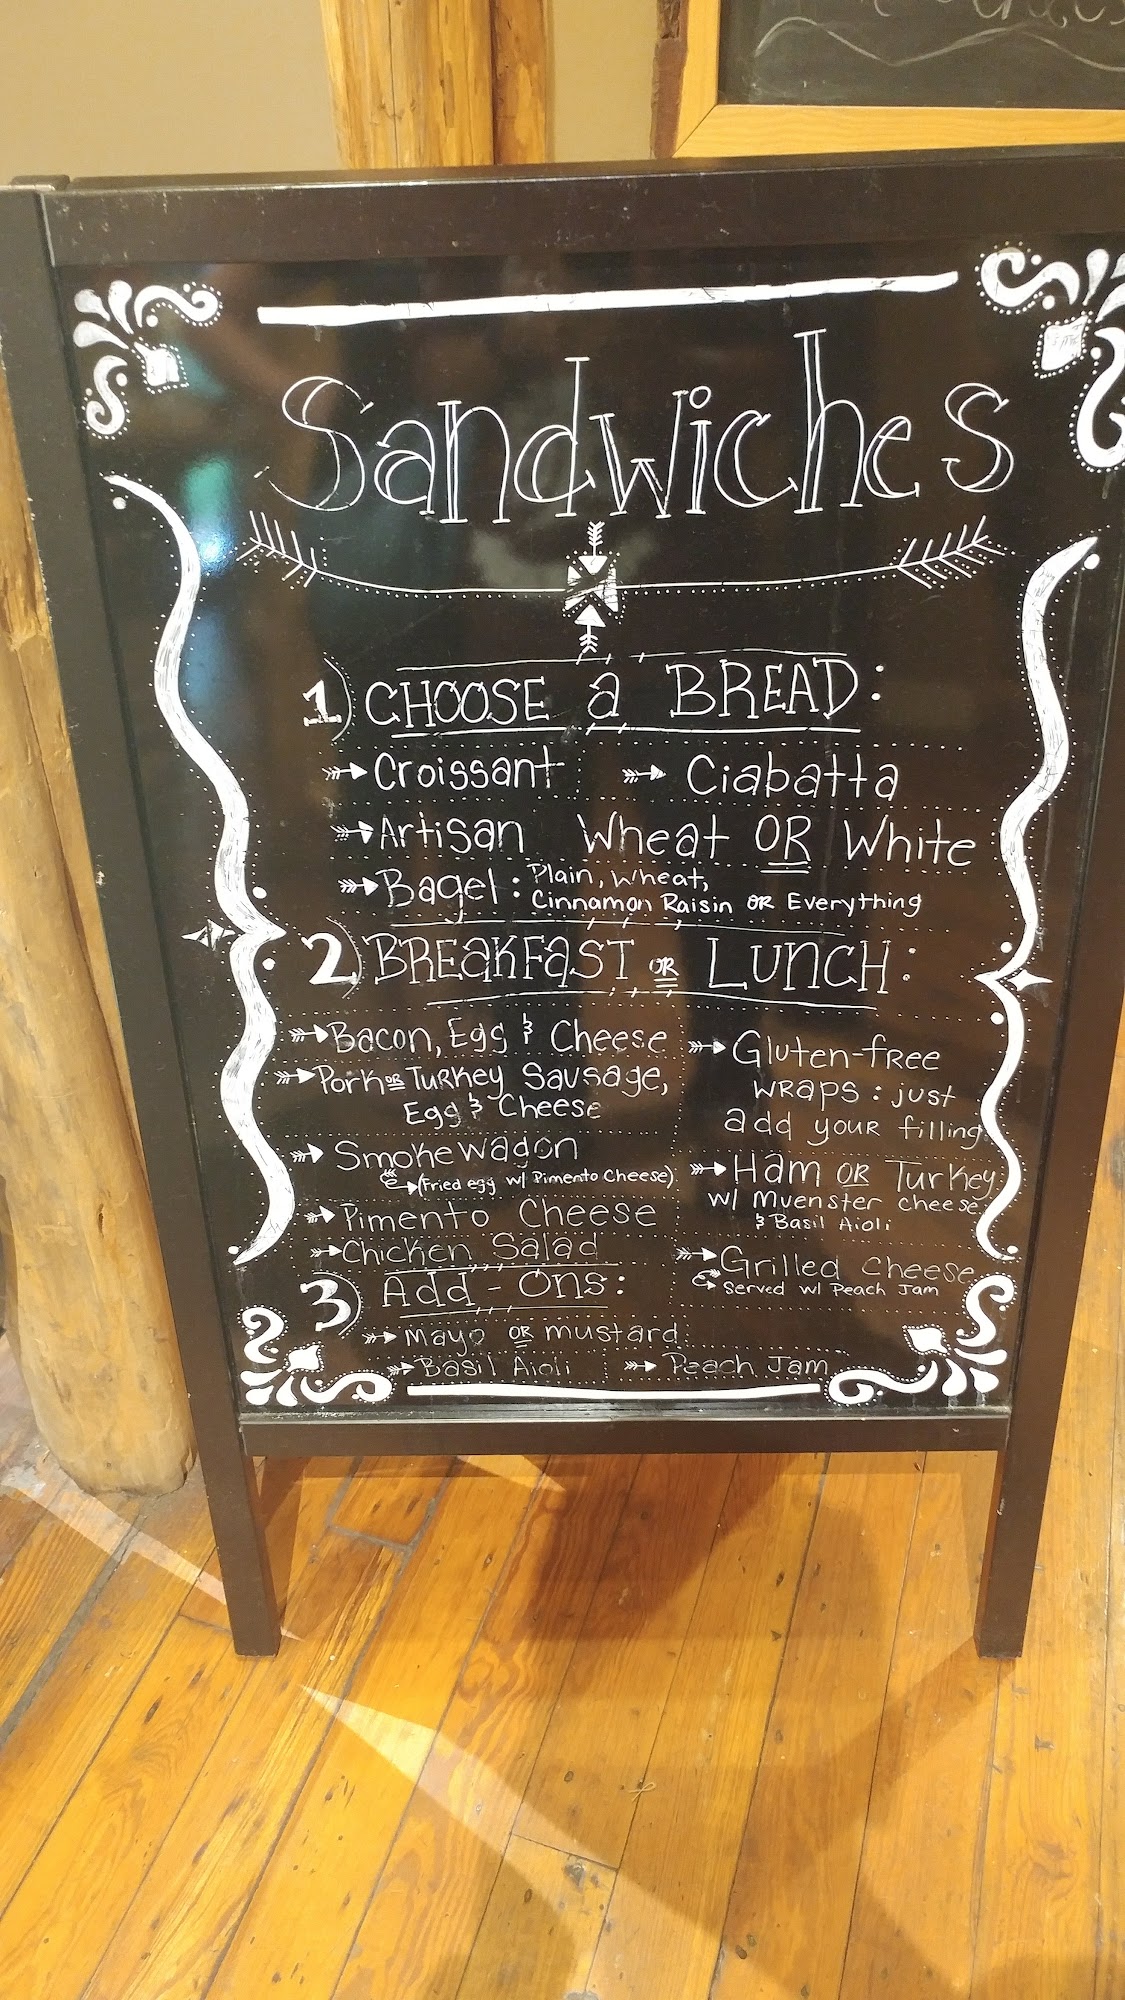 Sandwiches
1) CHOOSE a BREAD:
Croissant Ciabatta
Artisan Wheat OR White
Bagel: Plain, Wheat,
Cinnamon Raisin OR Everything
2) BREAKFAST OR LUNCH:
Bacon, Egg & Cheese
Pork OR Turkey Sausage,
Egg & Cheese
Smokewagon
(Fried egg w/ Pimento Cheese)
Pimento Cheese
Chicken Salad
Gluten-free
wraps: just
add your filling
Ham OR Turkey
w/ Muenster cheese
& Basil Aioli
Grilled cheese
Served w/ Peach Jam
3) Add-Ons:
Mayo OR mustard
Basil Aioli Peach Jam